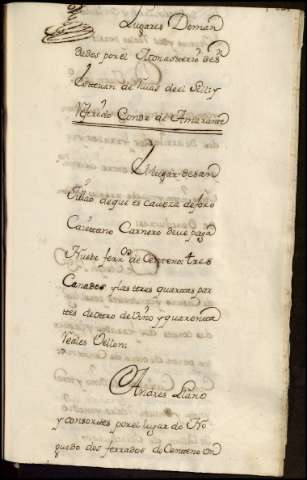 Lugares Deman
dados por el Monasterio de Sn
Estevan de Rivas de el Sil y
Conde de Amarante
El lugar de San
de que es cavera de foro
Cayetano Carnero deve pagar
Nueve ferrdos de Centeno: tres
Canados y las tres quartas par
tes de otro de Vino y quarenta
Reales Vellon.
Andres Llano
y consortes por el lugar de
quedo dos ferrados de Centeno en